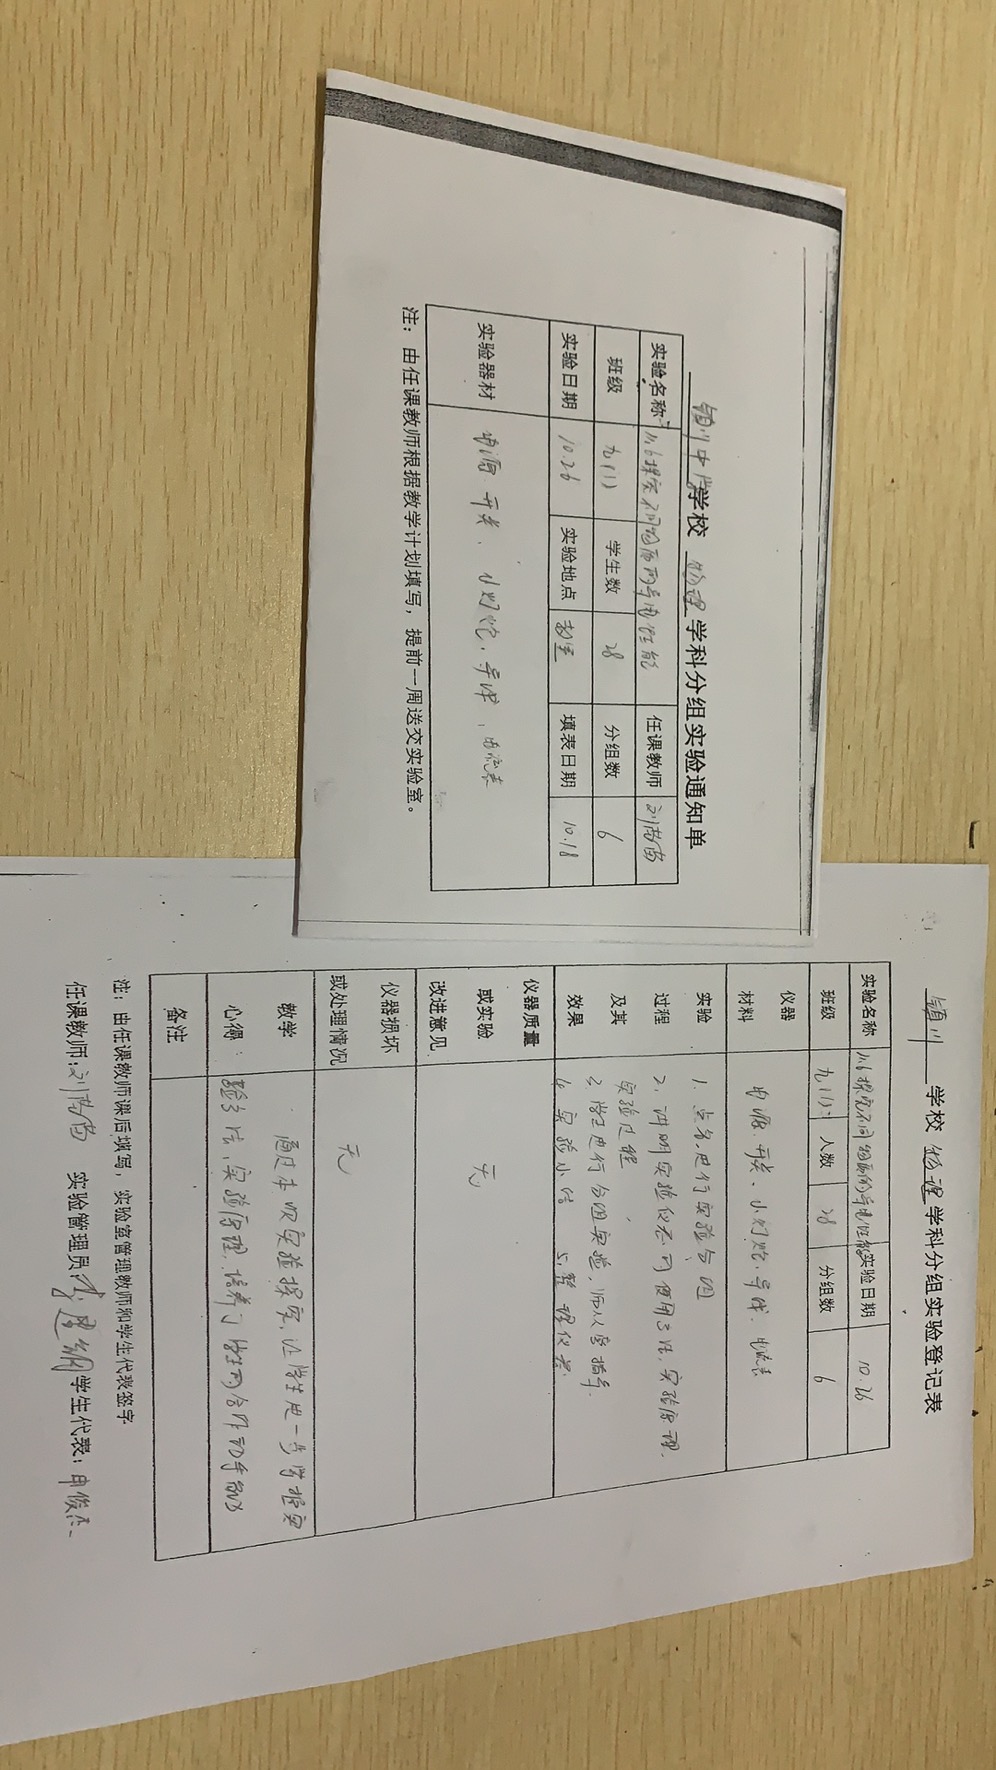 学校 物理 学科分组实验通知单
实验名称 11.6探究不同物质的导电性能 任课教师
班级 九(1) 学生数 28 分组数 6
实验日期 10.26 实验地点 教室 填表日期 10.18
实验器材 电源 开关、小灯炮、导线、电流表
注：由任课教师根据教学计划填写，提前一周送交实验室。
颖川 学校 物理 学科分组实验登记表
实验名称 11.6探究不同物质的导电性能 实验日期 10.26
班级 九(1) 人数 28 分组数 6
仪器材料 电源、开关、小灯炮、导线、电流表
实验过程及其效果
1. 点名,进行实验分组
2. 讲明实验仪器的使用方法,实验原理,
实验过程
3. 学生进行分组实验,师从旁指导.
4. 实验小结 5. 整理仪器.
仪器质量或实验改进意见 无
仪器损坏或处理情况 无
教学心得： 通过本次实验探究,让学生进一步掌握实
验方法,实验原理,培养了学生的合作动手能力
备注
注：由任课教师课后填写，实验室管理教师和学生代表签字
任课教师: 实验管理员 学生代表：